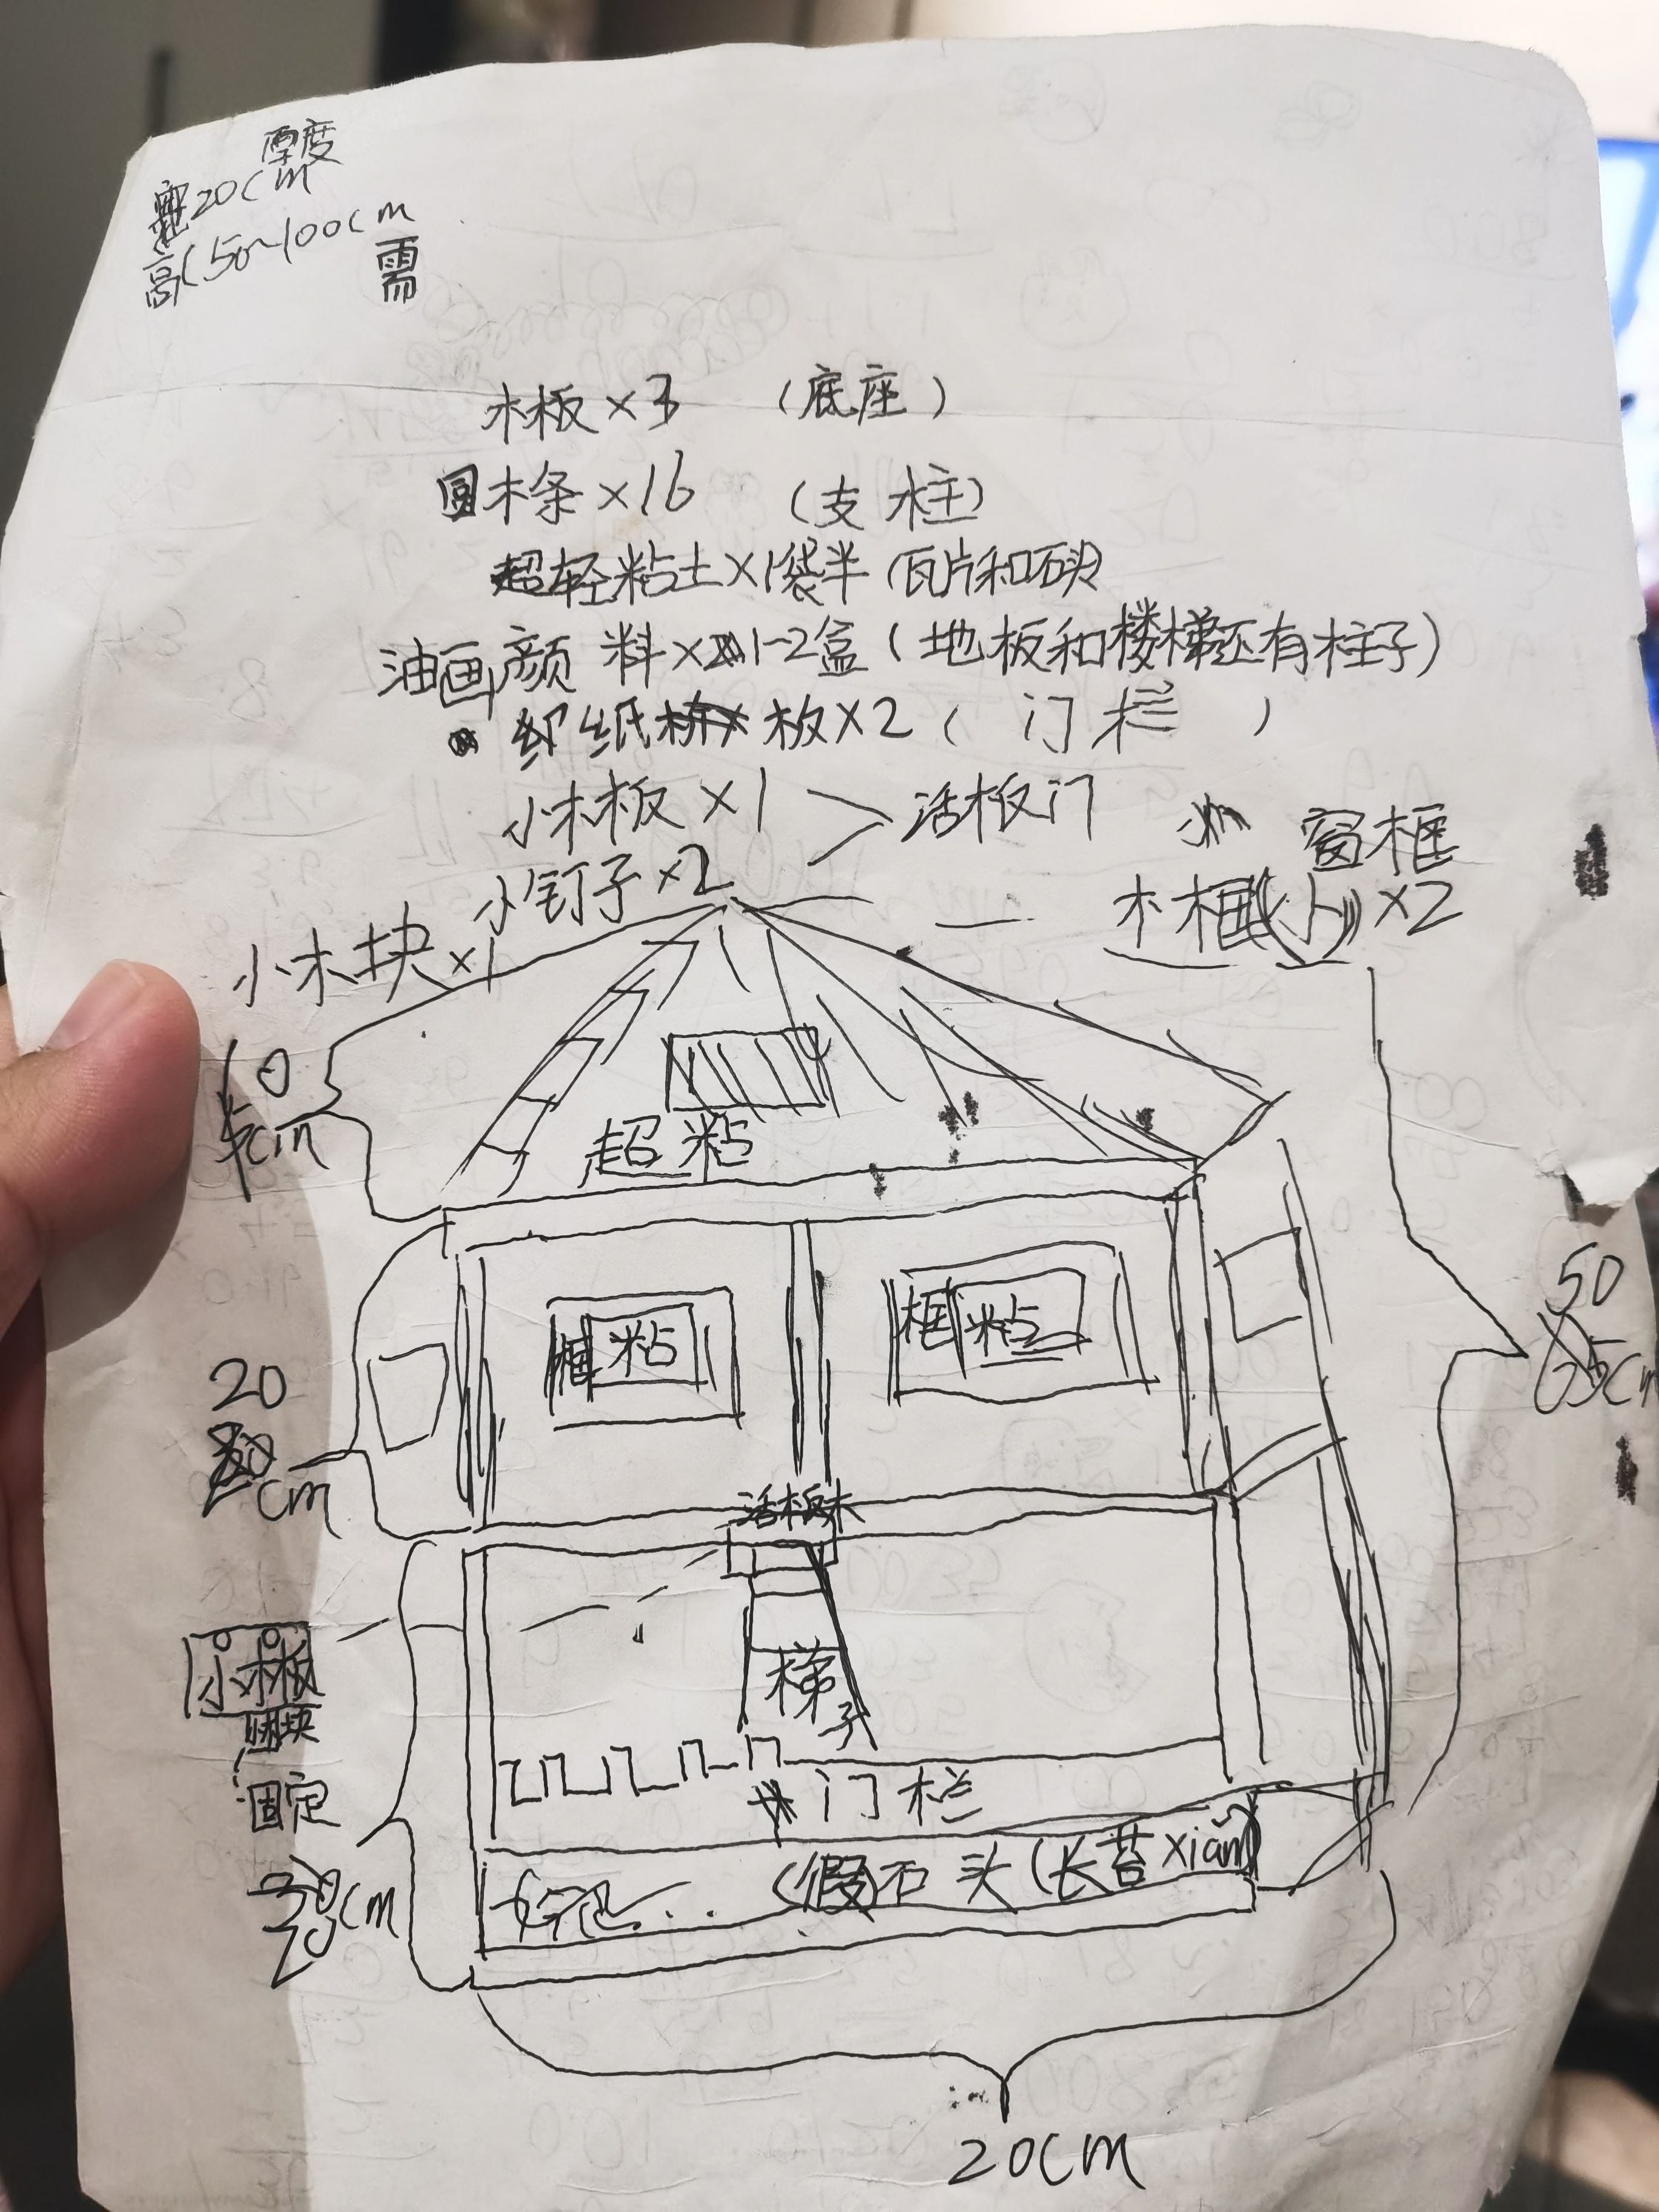 厚度
宽20cm
高(50~100cm
需
木板×3 (底座)
圆木条×16 (支柱)
超轻粘土×1袋半(瓦片和石头)
油画颜料×1-2盒(地板和楼梯还有柱子)
纸板×2( 门栏 )
小木板×1 > 活板门
小钉子×2
窗框
木框(小)×2
小木块×1
10
cm
超粘
框 粘
框 粘
20
cm
50
cm
活板木
梯子
小木板
木块
固定
门栏
(假)石头(长苔xiǎn
20cm
cm
20cm